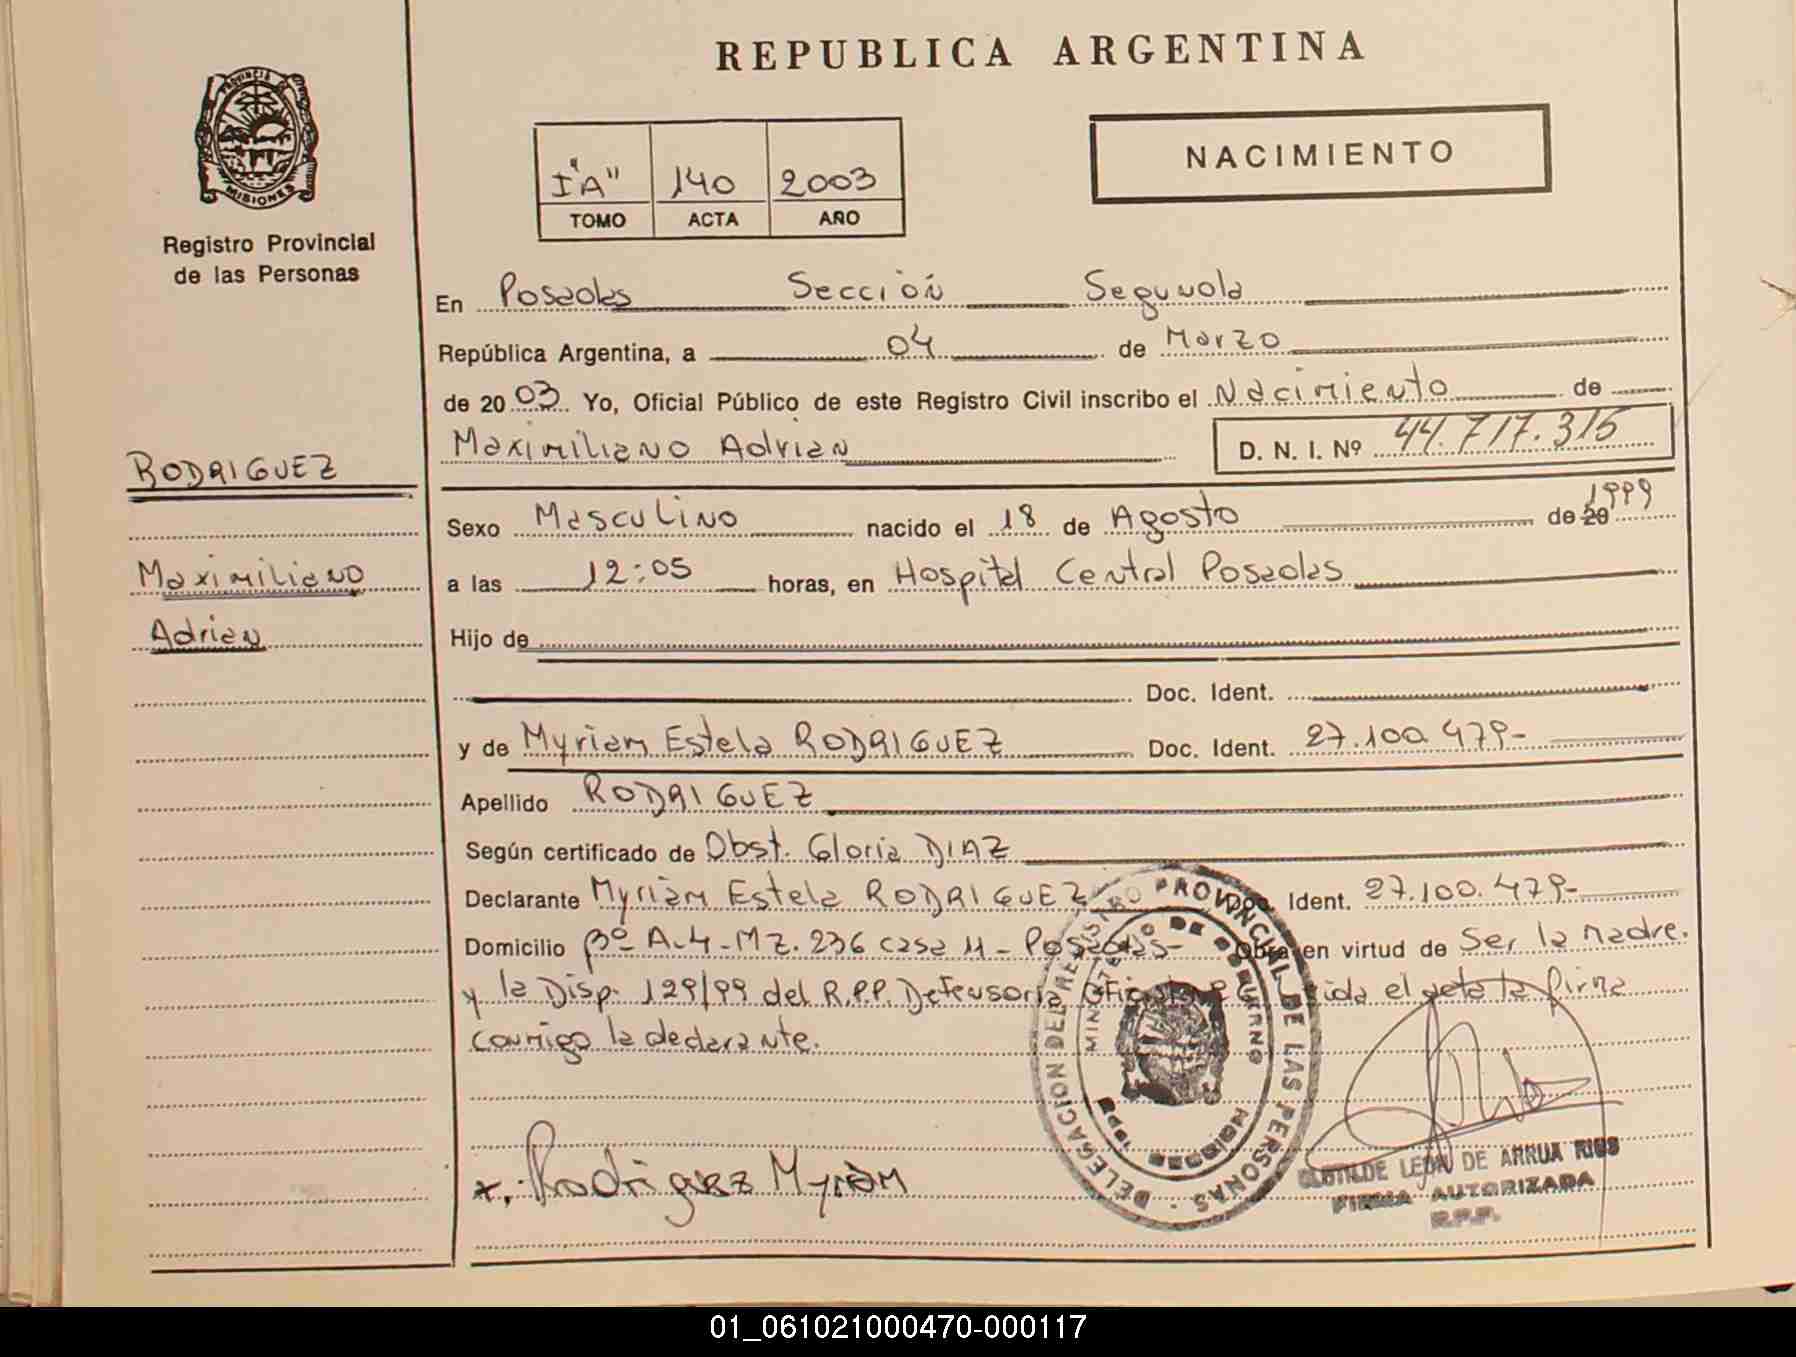 REPUBLICA ARGENTINA
PROVINCIA DE
MISIONES
Registro Provincial
de las Personas
I "A" 140 2003
TOMO ACTA AÑO
NACIMIENTO
En Posadas Sección Segunda
República Argentina, a 04 de Marzo
de 2003 Yo, Oficial Público de este Registro Civil inscribo el Nacimiento de
Maximiliano Adrian D. N. I. Nº 44.717.316
RODRIGUEZ
Maximiliano
Adrian
Sexo Masculino nacido el 18 de Agosto de 20 1999
a las 12:05 horas, en Hospital Central Posadas
Hijo de
Doc. Ident.
y de Myriam Estela RODRIGUEZ Doc. Ident. 27.100.479-
Apellido RODRIGUEZ
Según certificado de Obst. Gloria DIAZ
Declarante Myriam Estela RODRIGUEZ Doc. Ident. 27.100.479-
Domicilio Bº A-4-MZ. 236 casa 11 - Posadas- Obra en virtud de Ser la madre.
y la Disp. 129/99 del R.P.P. Defensoria Oficial el acta la firma
conmigo la declarante.
Rodriguez Myriam
DELEGACION DEL REGISTRO PROVINCIAL DE LAS PERSONAS
MINISTERIO DE GOBIERNO
CLOTILDE LEON DE ARRUA RIOS
FIRMA AUTORIZADA
R.P.P.
01_061021000470-000117